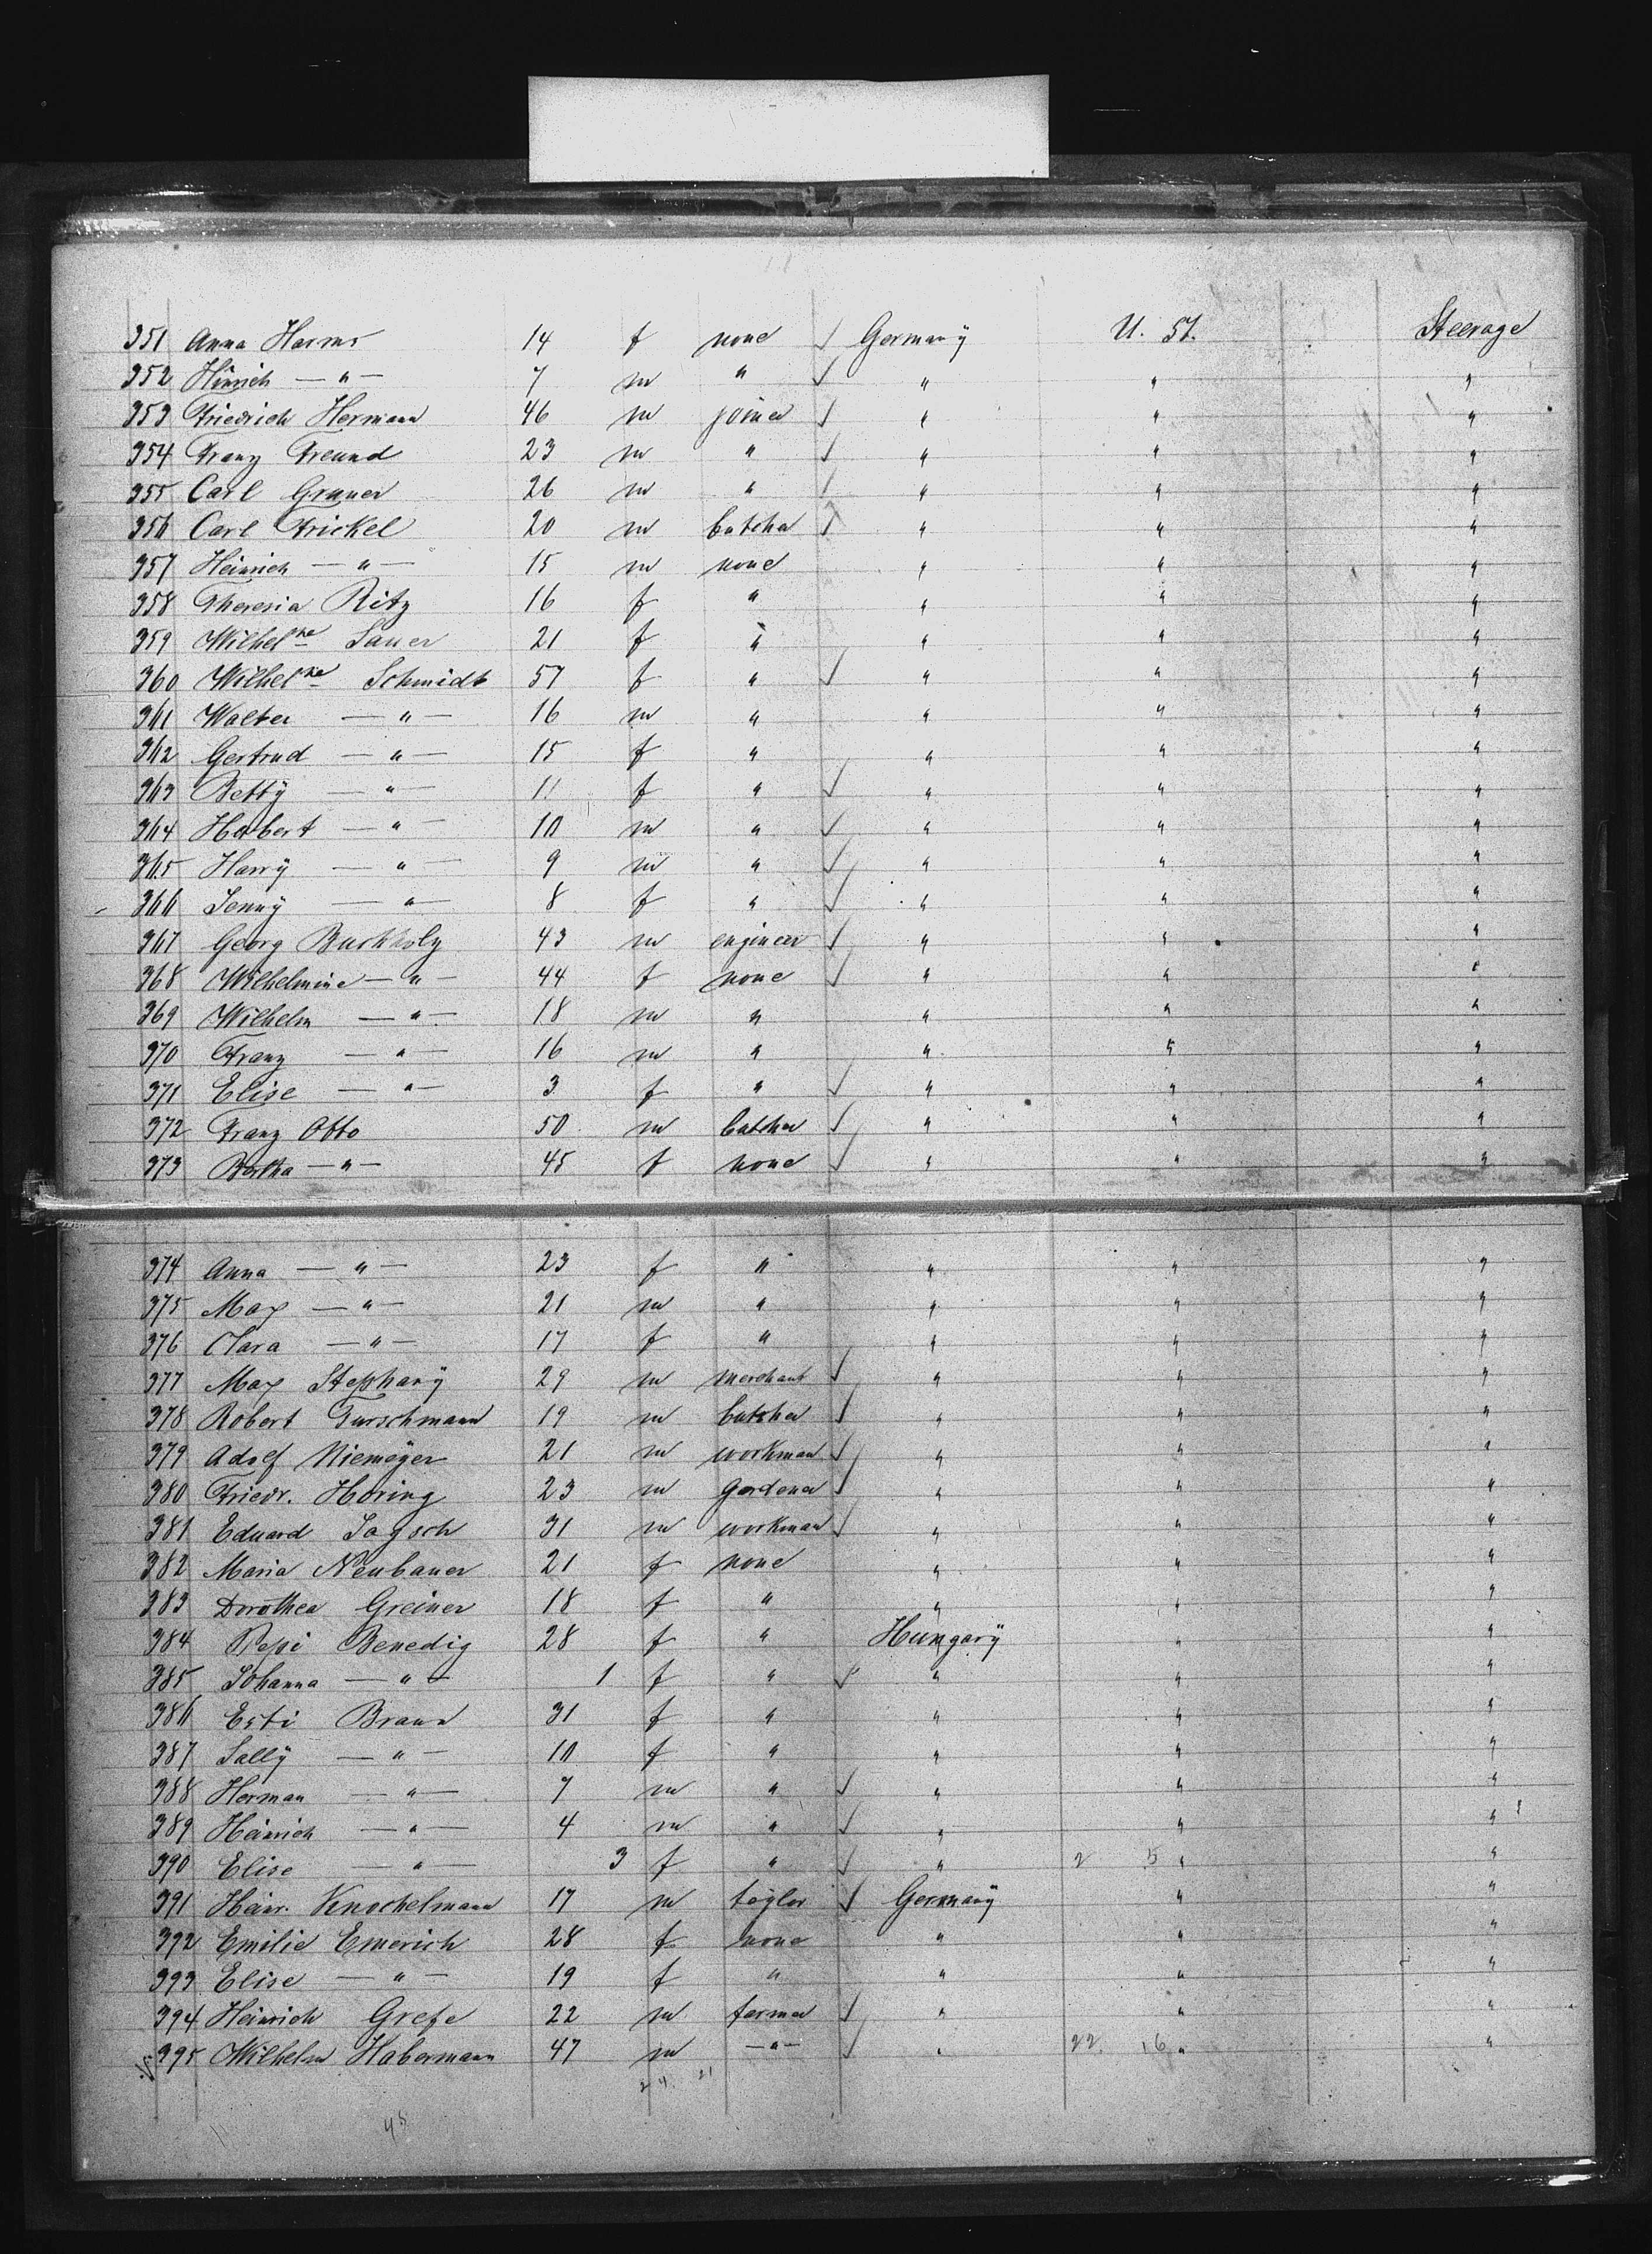 351 Anna Harms 14 f none Germany U. St. Steerage
352 Hinrich — " — 7 m " " " "
353 Friedrich Hermann 46 m joiner " " "
354 Franz Freund 23 m " " " "
355 Carl Gruner 26 m " " " "
356 Carl Frickel 20 m butcher " " "
357 Heinrich — " — 15 m none " " "
358 Theresia Ritz 16 f " " " "
359 Wilhelne Sauer 21 f " " " "
360 Wilhelne Schmidt 57 f " " " "
361 Walter — " — 16 m " " " "
362 Gertrud — " — 15 f " " " "
363 Betty — " — 11 f " " " "
364 Herbert — " — 10 m " " " "
365 Harry — " — 9 m " " " "
366 Jenny — " — 8 f " " " "
367 Georg Buchholz 43 m engineer " " "
368 Wilhelmine — " — 44 f none " " "
369 Wilhelm — " — 18 m " " " "
370 Franz — " — 16 m " " " "
371 Elise — " — 3 f " " " "
372 Franz Otto 50 m butcher " " "
373 Bertha — " — 45 f none " " "
374 Anna — " — 23 f " " " "
375 Max — " — 21 m " " " "
376 Clara — " — 17 f " " " "
377 Max Stephany 29 m merchant " " "
378 Robert Turschmann 19 m butcher " " "
379 Adolf Niemeyer 21 m workman " " "
380 Friedr. Horing 23 m gardener " " "
381 Eduard Jagsch 31 m workman " " "
382 Maria Neubauer 21 f none " " "
383 Dorothea Greiner 18 f " " " "
384 Pepi Benedig 28 f " Hungary " "
385 Johanna — " — 1 f " " " "
386 Esti Braun 31 f " " " "
387 Sally — " — 10 f " " " "
388 Herman — " — 7 m " " " "
389 Heinrich — " — 4 m " " " "
390 Elise — " — 3 f " " 2 5 " "
391 Heinr. Knochelmann 17 m taylor Germany " "
392 Emilie Emerich 28 f none " " "
393 Elise — " — 19 f " " " "
394 Heinrich Grefe 22 m farmer " " "
395 Wilhelm Habermann 47 m — " — " 22. 16 " "
24. 21
45